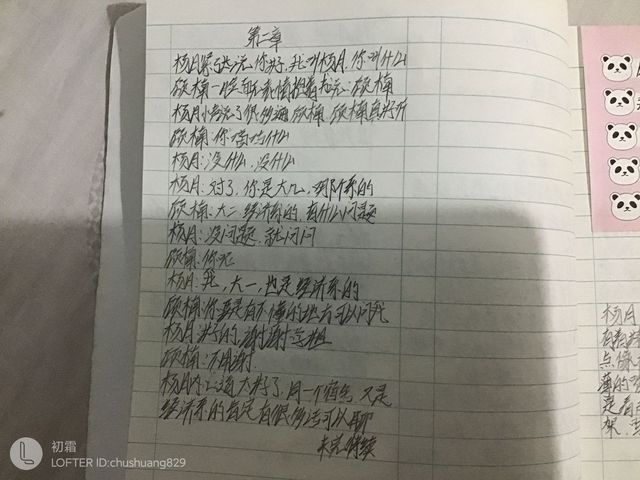 第二章
杨月紧张说: 你好, 我叫杨月, 你叫什么
顾楠一脸面无表情抱着书说: 顾楠
杨月小声说了很多遍 顾楠, 顾楠真好听
顾楠: 你嘀咕什么
杨月: 没什么, 没什么
杨月: 对了, 你是大几, 那个系的
顾楠: 大二 经济系的, 有什么问题
杨月: 没问题, 就问问
顾楠: 你呢
杨月: 我, 大一, 也是经济系的
顾楠: 你要是有不懂的地方可以问我
杨月: 好的, 谢谢学姐
顾楠: 不用谢
杨月心道: 太好了, 同一个宿舍, 又是
经济系的肯定有很多话可以聊
未完待续
杨月
点
薄的
是看
架
初霜
LOFTER ID:chushuang829